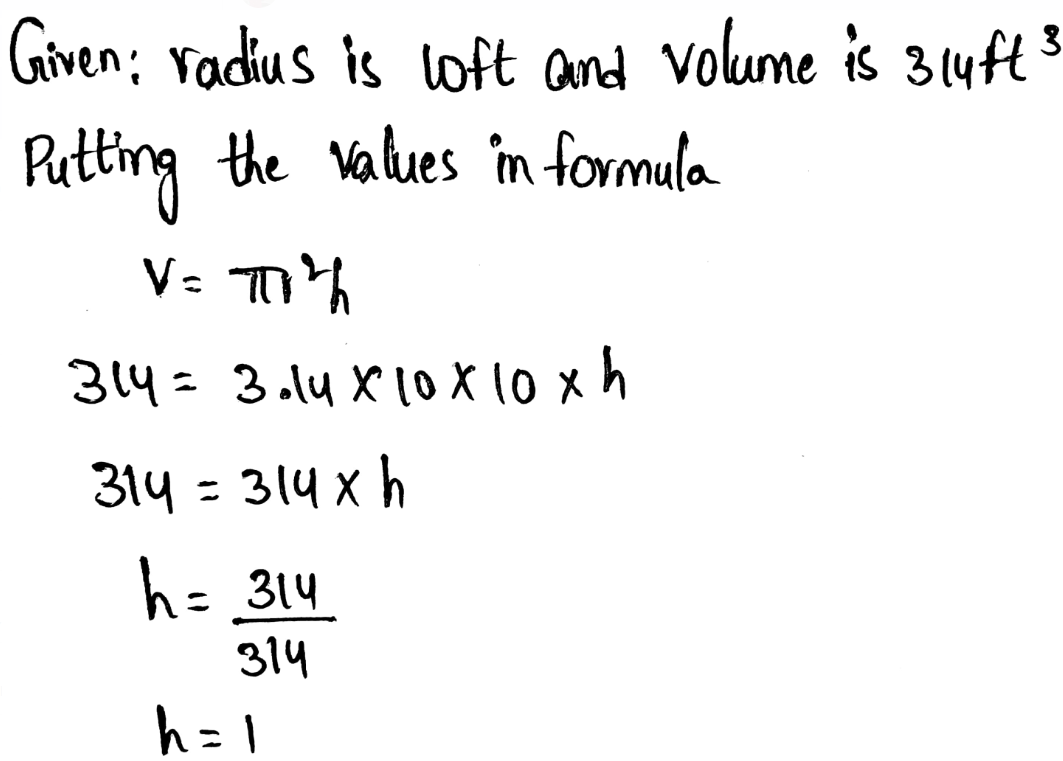 Given: radius is 10ft and volume is 314ft³
Putting the values in formula
V = πr²h
314 = 3.14 × 10 × 10 × h
314 = 314 × h
h = 314/314
h = 1